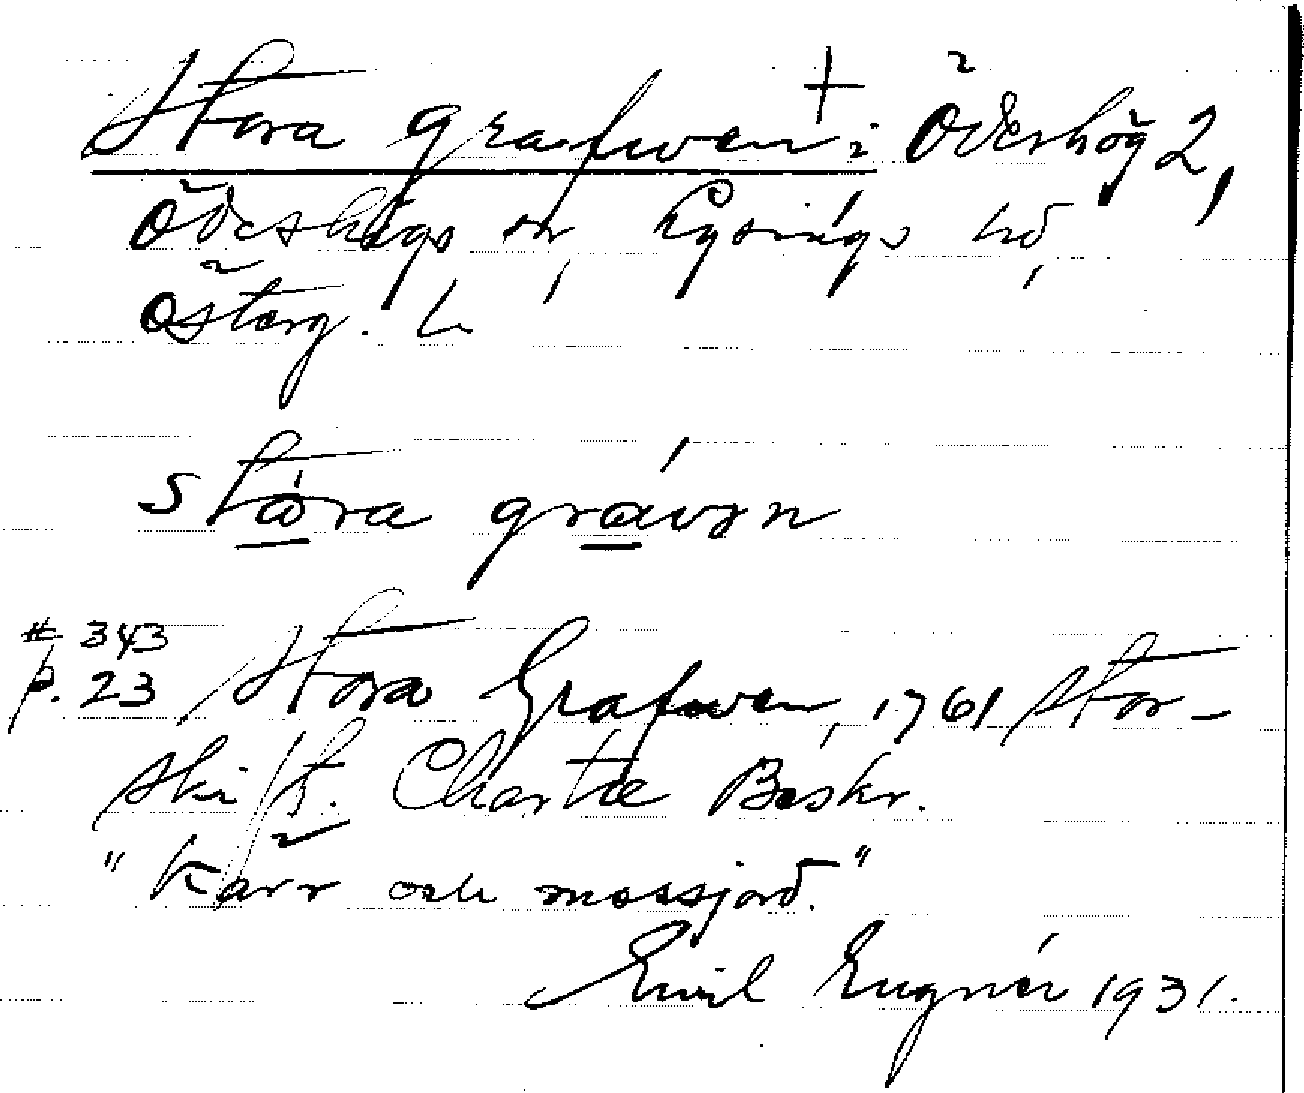 Stora grafwen + i Ödeshög 2,
Ödeshögs sn, Lysings hd,
Östergl. L.
stora graven
# 343
p. 23 Stora Grafwen, 1761 Stor-
skift. Charte Beskr.
"Kärr och mossjord."
Emil Eugnér 1931.